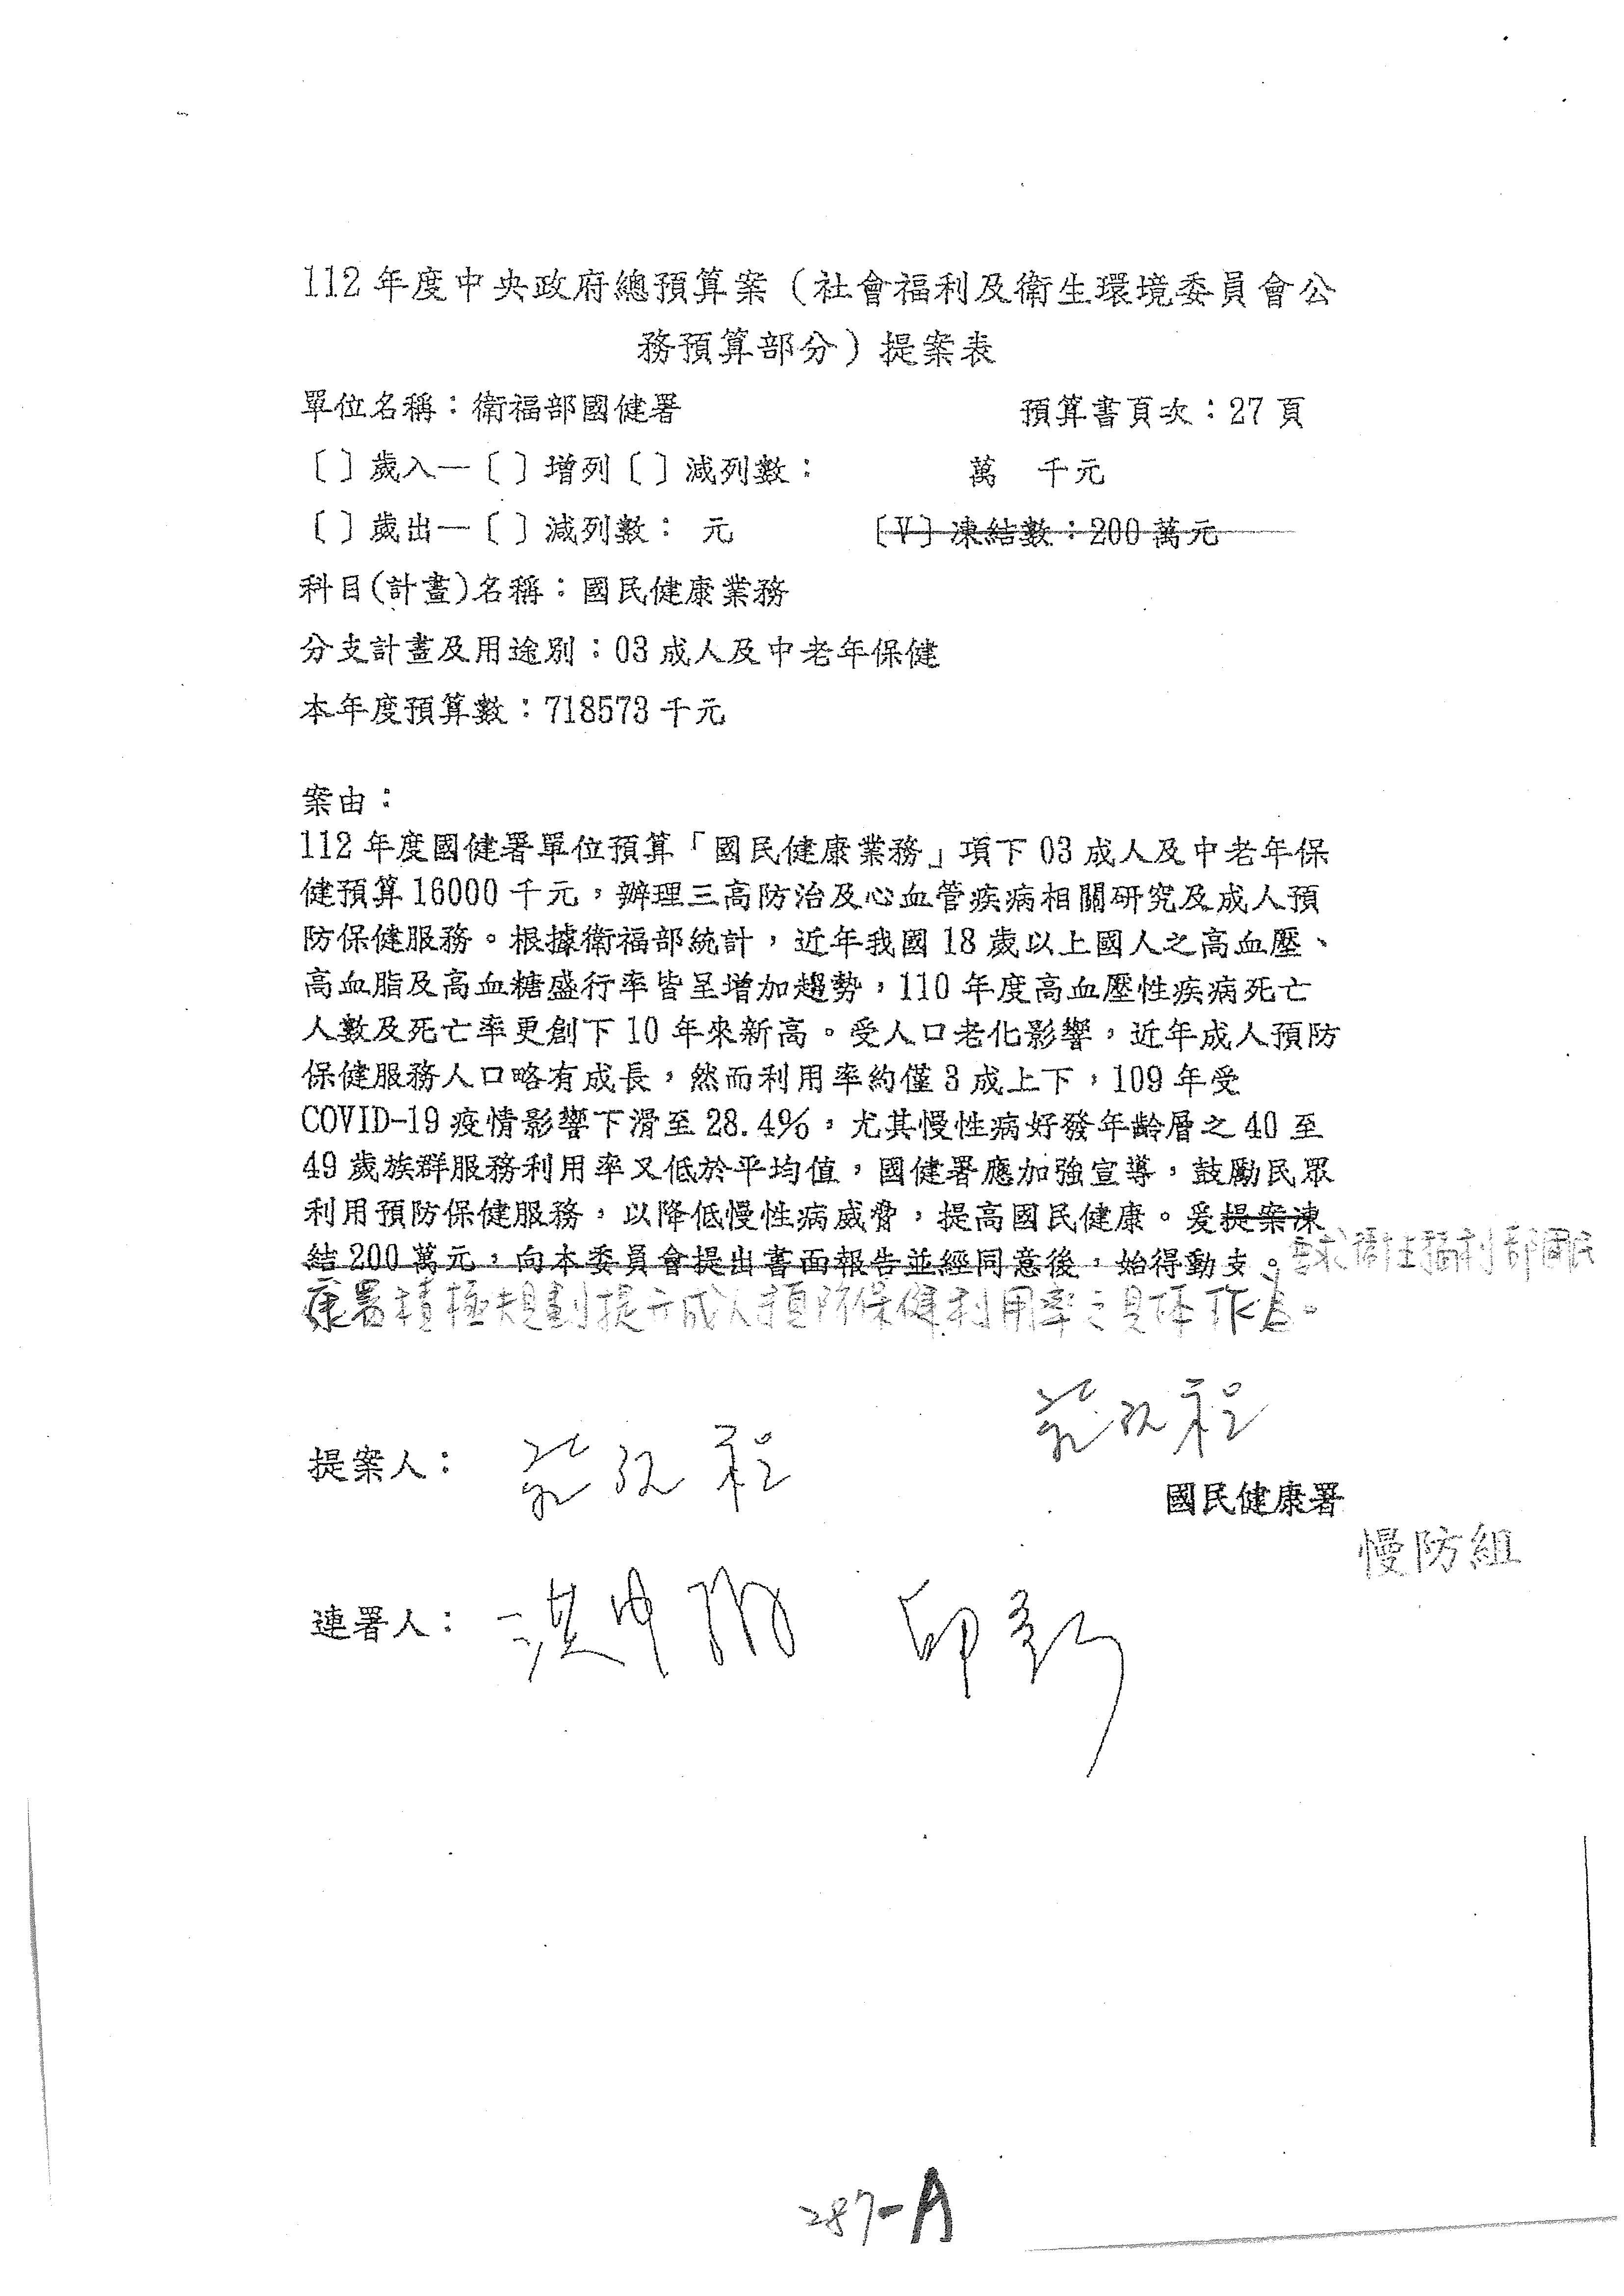 112年度中央政府總預算案（社會福利及衛生環境委員會公
務預算部分）提案表
單位名稱：衛福部國健署 預算書頁次：27頁
〔〕歲入—〔〕增列〔〕減列數： 萬 千元
〔〕歲出—〔〕減列數： 元 〔V〕凍結數：200萬元
科目(計畫)名稱：國民健康業務
分支計畫及用途別：03成人及中老年保健
本年度預算數：718573千元
案由：
112年度國健署單位預算「國民健康業務」項下03成人及中老年保
健預算16000千元，辦理三高防治及心血管疾病相關研究及成人預
防保健服務。根據衛福部統計，近年我國18歲以上國人之高血壓、
高血脂及高血糖盛行率皆呈增加趨勢，110年度高血壓性疾病死亡
人數及死亡率更創下10年來新高。受人口老化影響，近年成人預防
保健服務人口略有成長，然而利用率約僅3成上下，109年受
COVID-19疫情影響下滑至28.4%，尤其慢性病好發年齡層之40至
49歲族群服務利用率又低於平均值，國健署應加強宣導，鼓勵民眾
利用預防保健服務，以降低慢性病威脅，提高國民健康。爰提案凍
結200萬元，向本委員會提出書面報告並經同意後，始得動支。要求衛生福利部國民
康署積極規劃提升成人預防保健利用率之具体作為。
莊
提案人：莊
國民健康署
慢防組
連署人：
287-A